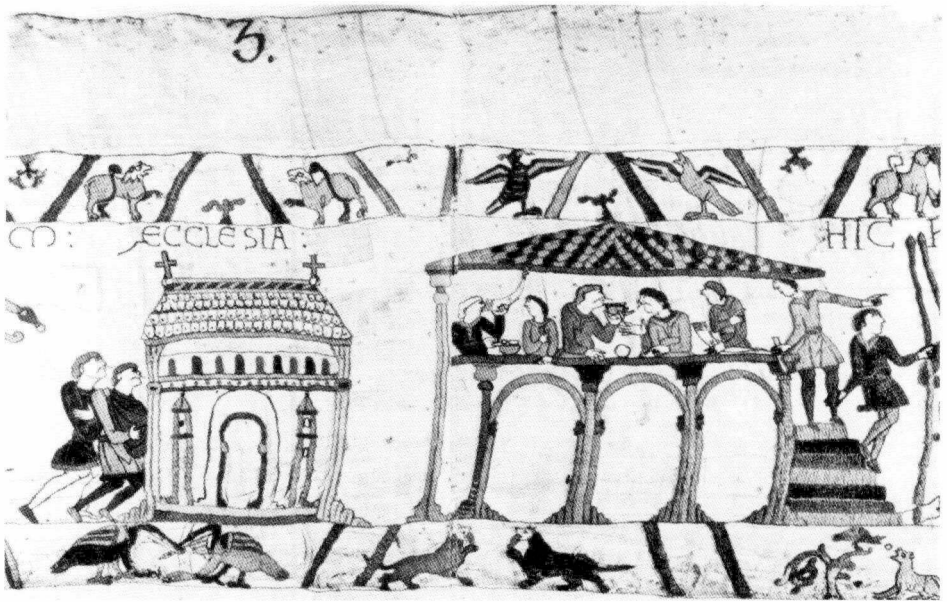 3.
M: ECCLESIA: HIC